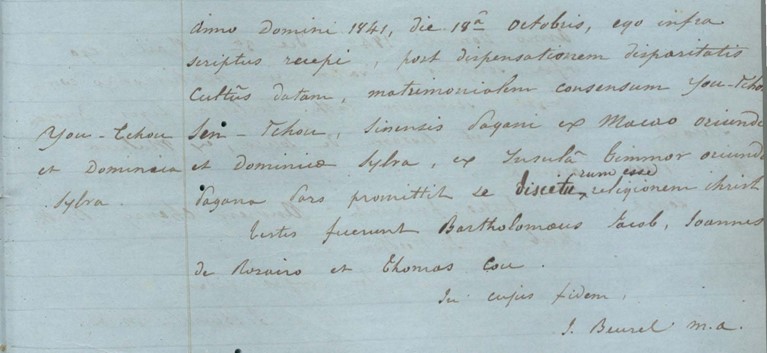 Anno Domini 1841, die 18ª Octobris, ego infra
scriptus recepi, post dispensationem disparitatis
Cultûs datam, matrimonialem consensum You-Tchou
You-Tchou
et Dominica
Sylva
Sen-Tchou, sinensis pagani ex Macao oriundi
et Dominicæ Sylva, ex Insulâ Timmor oriunda
pagana pars promittit se discitu religionem christ
rum esse
Testes fuerunt Bartholomæus Jacob, Joannes
de Rozairo et Thomas Cou.
In cujus fidem,
J. Beurel m.a.